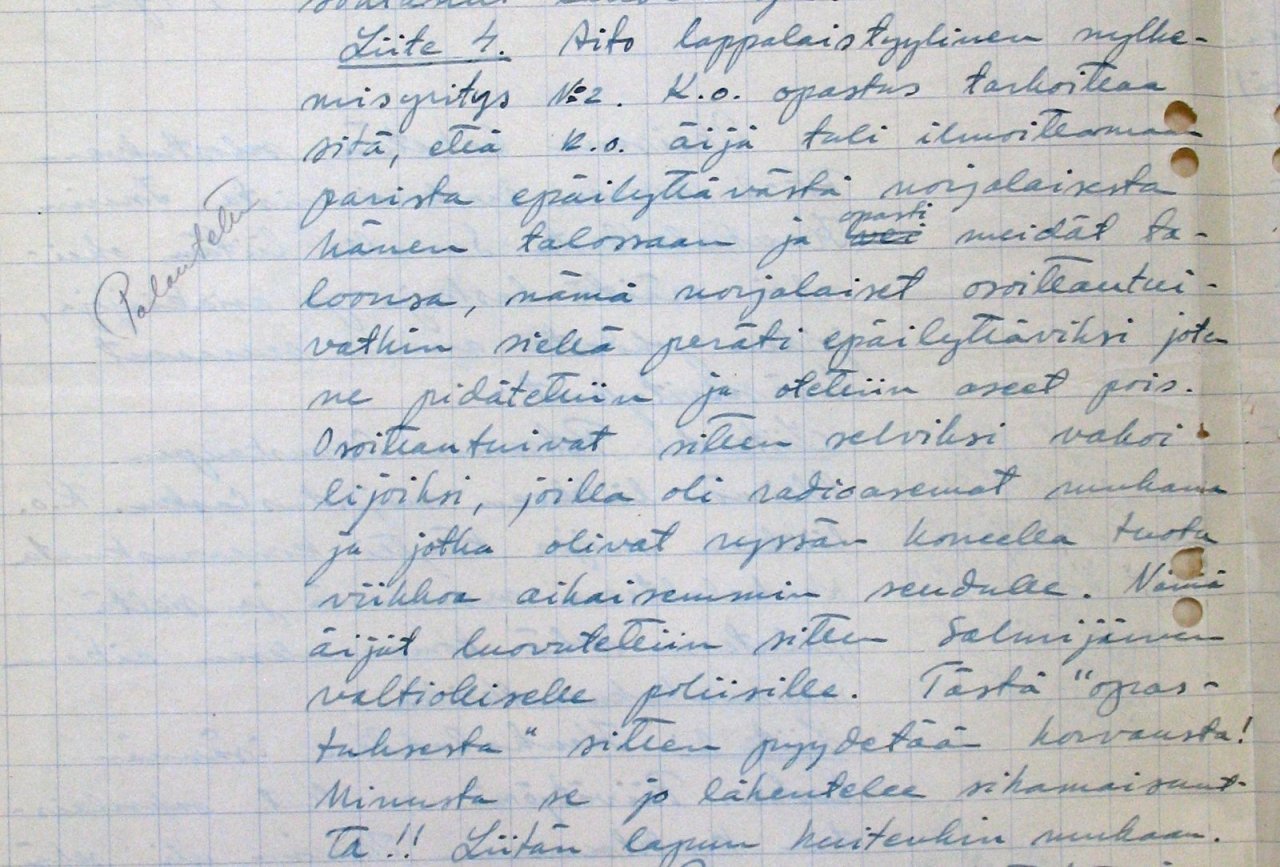 Liite 4. Aito lappalaistyylinen nylke-
misyritys № 2. K.o. opastus tarkoittaa
sitä, että k.o. äijä tuli ilmoittamaan
parista epäilyttävästä norjalaisesta
hänen talossaan ja opasti meidät ta-
loonsa, nämä norjalaiset osoittautui-
vatkin sieltä peräti epäilyttäviksi joten
ne pidätettiin ja otettiin aseet pois.
Osoittautuivat sitten selviksi vakoi
lijoiksi, joilla oli radioasemat mukana
ja jotka olivat ryssän koneella tuotu
viikkoa aikaisemmin seudulle. Nämä
äijät luovutettiin sitten Salmijärven
valtiolliselle poliisille. Tästä "opas-
tuksesta" sitten pyydetään korvausta!
Minusta se jo lähentelee sikamaisuut-
ta!! Liitän lapun kuitenkin mukaan.
Palautettu